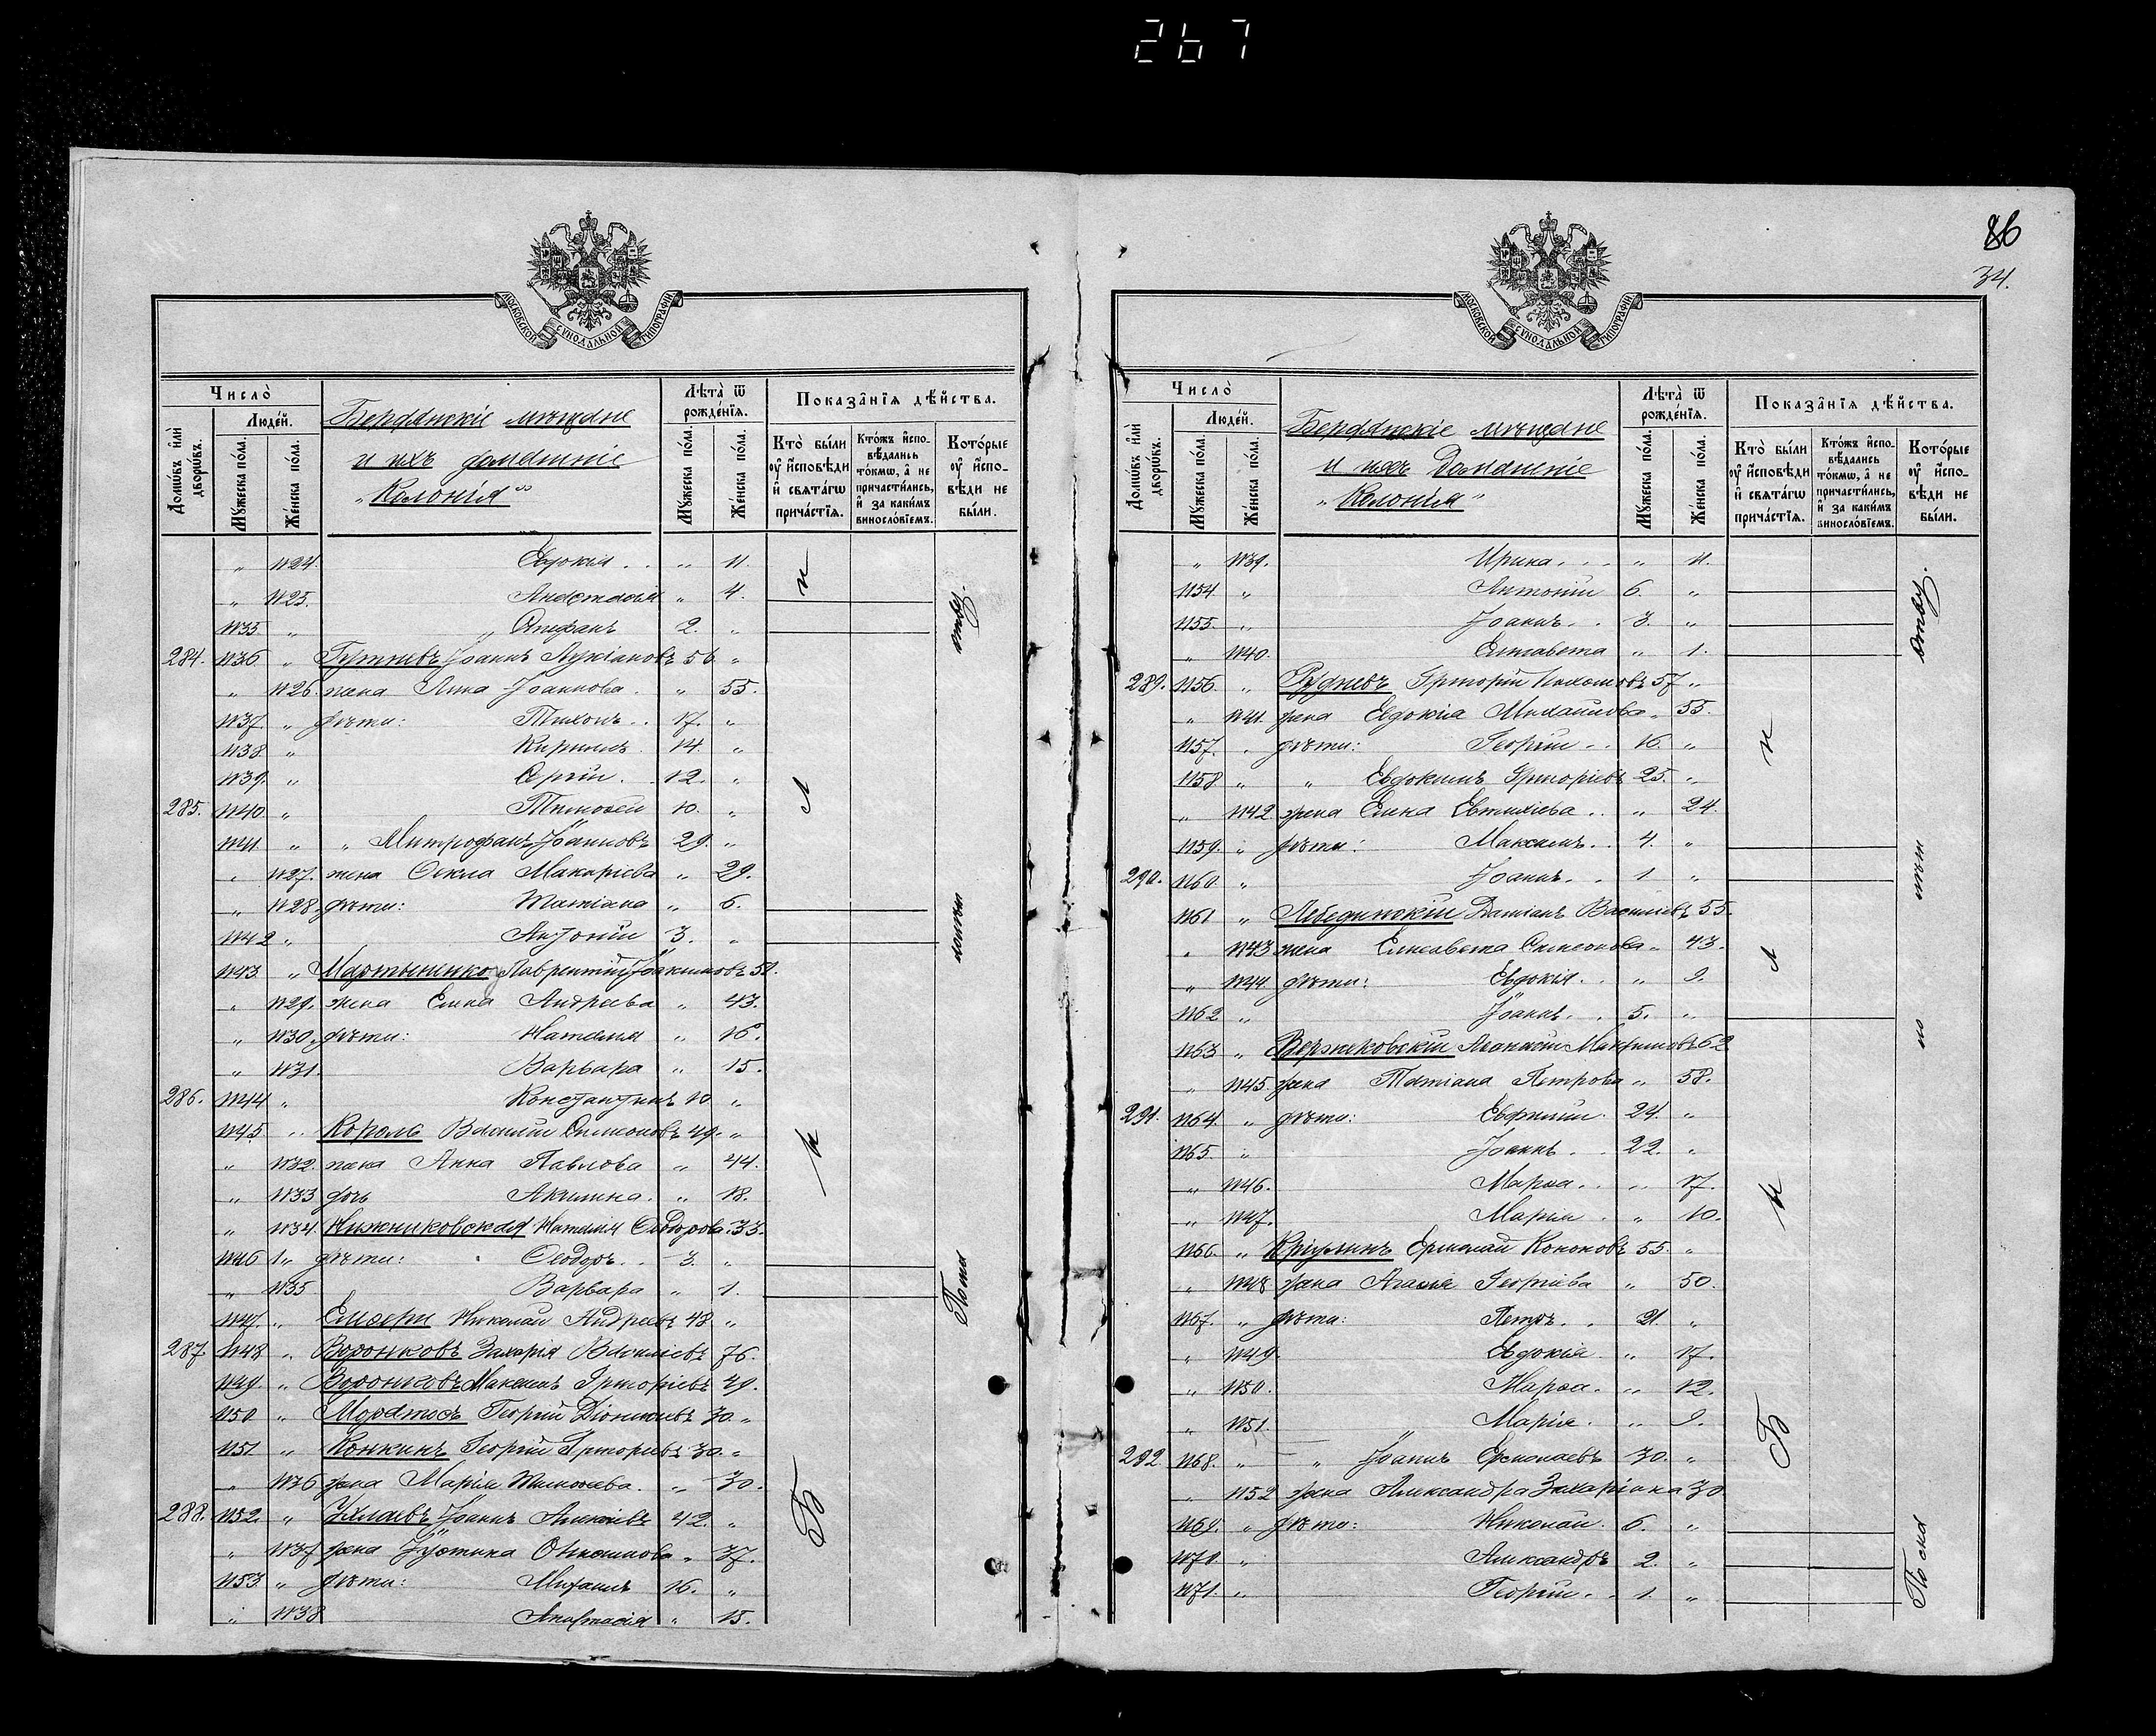 267
МОСКОВСКОЙ СУНОДАЛЬНОЙ ТИПОГРАФІИ
Число̀
Люде́й.
Домо́въ и҆лѝ дворо́въ.
Мꙋ́жеска по́ла.
Же́нска по́ла.
Бердянскіе мѣщане
и ихъ домашніе
„Колонія“
Лѣта̀ ѿ рожде́нїѧ.
Мꙋ́жеска по́ла.
Же́нска по́ла.
Показа̑нїѧ дѣ́йства.
Кто̀ бы́ли оу҆ и҆сповѣ́ди и҆ свѧта́гѡ прича́стїѧ.
Кто́жъ и҆спо-вѣ́дались то́кмѡ, а҆ не причасти́лись, и҆ за каки́мъ виносло́вїемъ.
Кото́рые оу҆ и҆спо-вѣ́ди не бы́ли.
„ 1124. Евдокія . . „ 11.
„ 1125. Анастасія „ 4.
1135 „ „ Стефанъ 2. „
284. 1136 „ Іоаннъ Лукіановъ 56 „
„ 1126. жена Анна Іоаннова . „ 55.
1137. „ дѣти: Тихонъ . . 17. „
1138. „ Кириллъ . 14. „
1139. „ Сергій . 12. „
285. 1140. „ Тимоѳей 10. „
1141 „ „ Митрофанъ Іоанновъ 29. „
„ 1127. жена Ѳекла Макаріева „ 29.
„ 1128. дѣти: Татіана „ 6.
1142 „ Антоній 3. „
1143 „ Мартыненко Лаврентій Іоакимовъ 51.
„ 1129. жена Елена Андреева „ 43.
„ 1130. дѣти: Наталія „ 16.
„ 1131. Варвара „ 15.
286. 1144 „ Константинъ 10 „
1145 „ Король Василій Симеоновъ 49. „
„ 1132. жена Анна Павлова „ 44.
„ 1133 дочь Акилина . „ 18.
„ 1134. Нижниковская Наталія Ѳеодорова . 33.
1146 „ дѣти: Ѳеодоръ . . 3. „
„ 1135 Варвара „ 1.
1147. „ Николай Андреевъ 48 „
287. 1148 „ Воронковъ Захарія Васильевъ 76.
1149. „ Воронковъ Максимъ Григоріевъ 49.
1150 „ Георгій Діонисіевъ 30. „
1151 „ Конкинъ Георгій Григорьевъ 30. „
„ 1136 жена Марія Тимоѳеева . „ 30.
288. 1152. „ Іоаннъ Алексіевъ 42. „
„ 1137 жена Іустина „ 37.
1153. „ дѣти: Михаилъ 16. „
„ 1138 Анастасія „ 15.
86
34.
МОСКОВСКОЙ СУНОДАЛЬНОЙ ТИПОГРАФІИ
Число̀
Люде́й.
Домо́въ и҆лѝ дворо́въ.
Мꙋ́жеска по́ла.
Же́нска по́ла.
Бердянскіе мѣщане
и ихъ домашніе
„Колонія“
Лѣта̀ ѿ рожде́нїѧ.
Мꙋ́жеска по́ла.
Же́нска по́ла.
Показа̑нїѧ дѣ́йства.
Кто̀ бы́ли оу҆ и҆сповѣ́ди и҆ свѧта́гѡ прича́стїѧ.
Кто́жъ и҆спо-вѣ́дались то́кмѡ, а҆ не причасти́лись, и҆ за каки́мъ виносло́вїемъ.
Кото́рые оу҆ и҆спо-вѣ́ди не бы́ли.
„ 1139. Ирина . . . „ 11.
1154 „ Антоній 6. „
1155. „ Іоаннъ . . 3. „
„ 1140. Елизавета „ 1.
289. 1156. „ Рудневъ Григорій Пахомовъ 57 „
„ 1141. жена Евдокія Михайлова „ 55.
1157. „ дѣти: Георгій . . 16. „
1158 „ „ Евдокимъ Григоріевъ 25. „
„ 1142 жена Елена Евтихіева . . „ 24.
1159. „ дѣти: Максимъ . . 4. „
290. 1160. „ Іоаннъ . . 1 „
1161 „ Лебединскій Даміанъ Василіевъ 55.
„ 1143 жена Елисавета Симеонова „ 43.
„ 1144 дѣти: Евдокія . . „ 9.
1162 „ Іоаннъ . . 5. „
1163 „ Аѳанасій Максимовъ 62
„ 1145 жена Татіана Петрова „ 58.
291. 1164. „ дѣти: Евфимій . 24. „
1165. „ Іоаннъ . . 22. „
„ 1146. Марѳа . . „ 17.
„ 1147. Марія . „ 10.
1166. „ Ермолай Кононовъ 55. „
„ 1148. жена Агаѳія Георгіева „ 50.
1167. „ дѣти: Петръ . . 21. „
„ 1149. Евдокія . „ 17.
„ 1150. Марѳа . „ 12.
„ 1151. Марія . „ 9.
292 1168. „ „ Іоаннъ Ермолаевъ 30. „
„ 1152 жена Александра Захаріина 30
1169. „ дѣти: Николай . 6. „
1170. „ Александръ 2. „
1171. „ Георгій . . 1. „